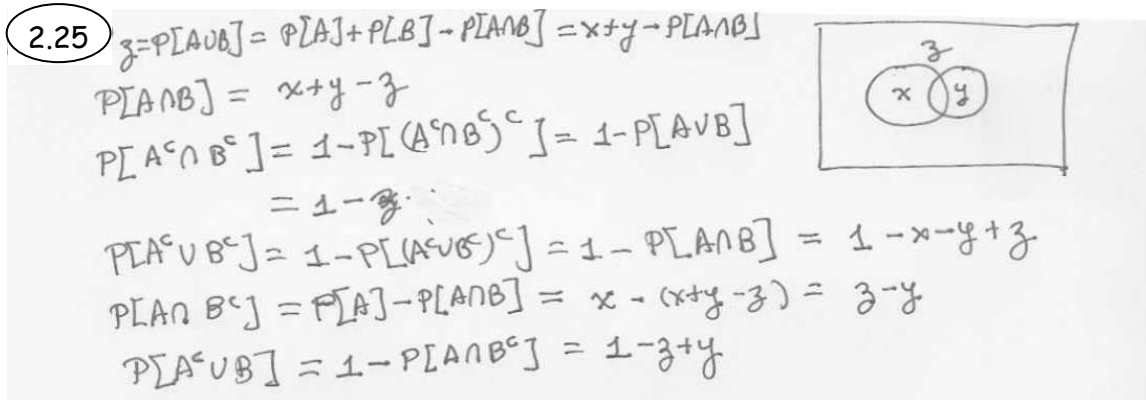 2.25 z=P[A∪B]= P[A]+P[B]-P[A∩B] =x+y-P[A∩B]
P[A∩B] = x+y-z
P[Aᶜ∩Bᶜ]= 1-P[(Aᶜ∩Bᶜ)ᶜ]= 1-P[A∪B]
= 1-z.
P[Aᶜ∪Bᶜ]= 1-P[(Aᶜ∪Bᶜ)ᶜ]=1-P[A∩B] = 1-x-y+z
P[A∩Bᶜ] = P[A]-P[A∩B] = x-(x+y-z) = z-y
P[Aᶜ∪B] = 1-P[A∩Bᶜ] = 1-z+y
z
x y